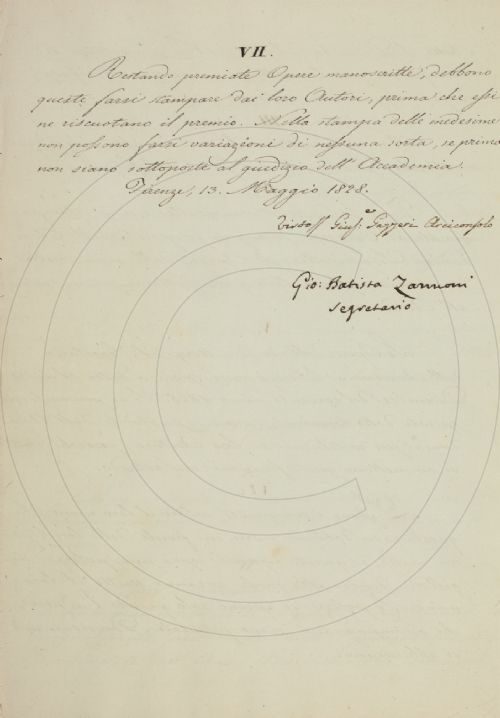 VII.
Restando premiate Opere manoscritte, debbono
queste farsi stampare dai loro Autori, prima che essi
ne riscuotano il premio. Nella stampa delle medesime
non possono farsi variazioni di nessuna sorta, se prima
non siano sottoposte al giudizio dell'Accademia.
Firenze, 13. Maggio 1828.
Gius.e Gazzeri Arciconsolo
Gio: Batista Zannoni
Segretario